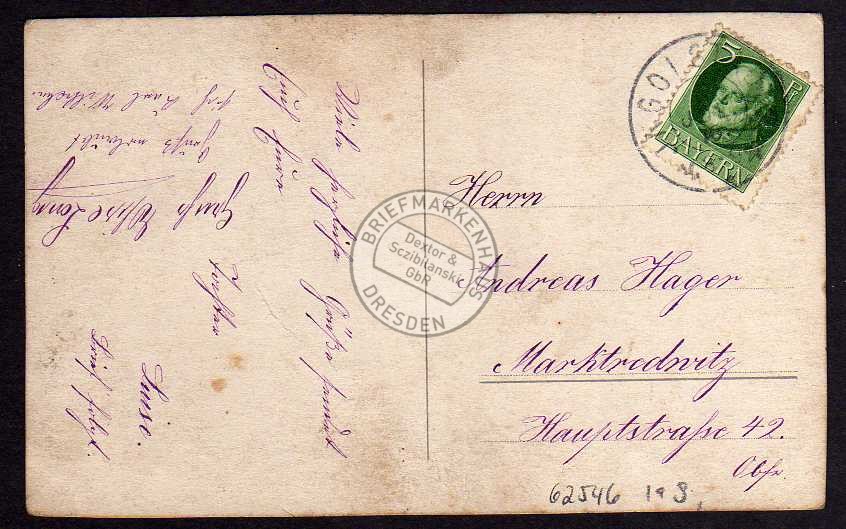 Viele herzliche Grüße sendet
Euch Eure
Tochter
Luise.
Brief folgt.
Gruß
Grüße
Karl Wilhelm.
Herrn
Andreas Hager
Marktredwitz
Hauptstraße 42.
Obfr.
5 Pf
BAYERN
GOL
BRIEFMARKENHAUS
Dextor &
Sczibilanski
GbR
DRESDEN
62546 19 S,